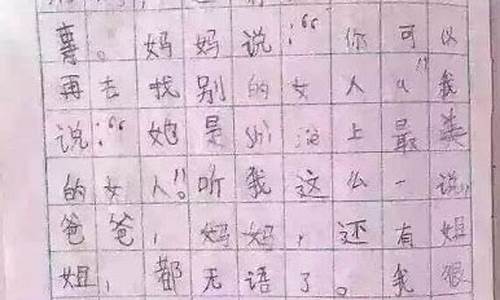 事。妈妈说:“你可以
再去找别的女人。”我
说:“她是shi 上最美
的女人”。听我这么一说,
爸爸,妈妈,还有姐
姐,都无语了。我狠